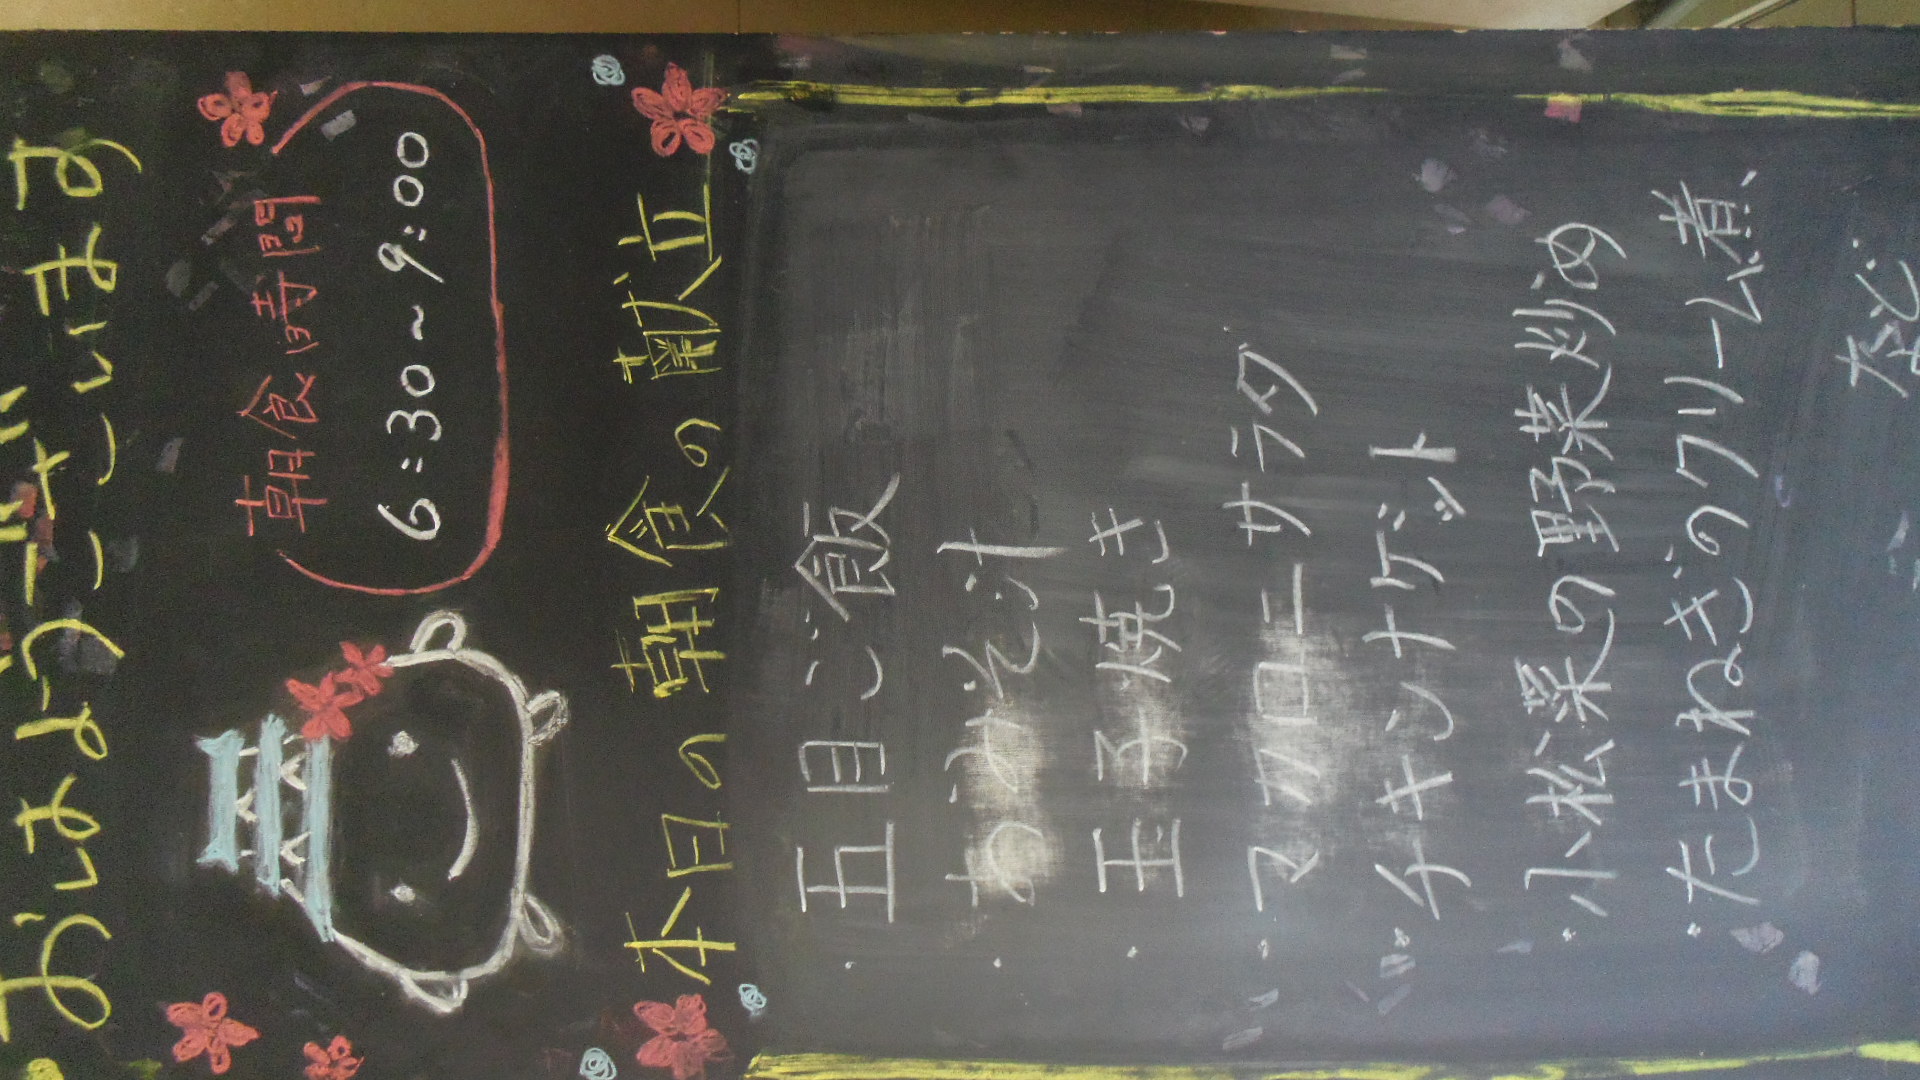 おはようございます
朝食時間
6:30~9:00
本日の朝食の献立
・五目ご飯
・おみそ汁
・玉子焼き
・マカロニサラダ
・チキンナゲット
・小松菜の野菜炒め
・たまねぎのクリーム煮、
など